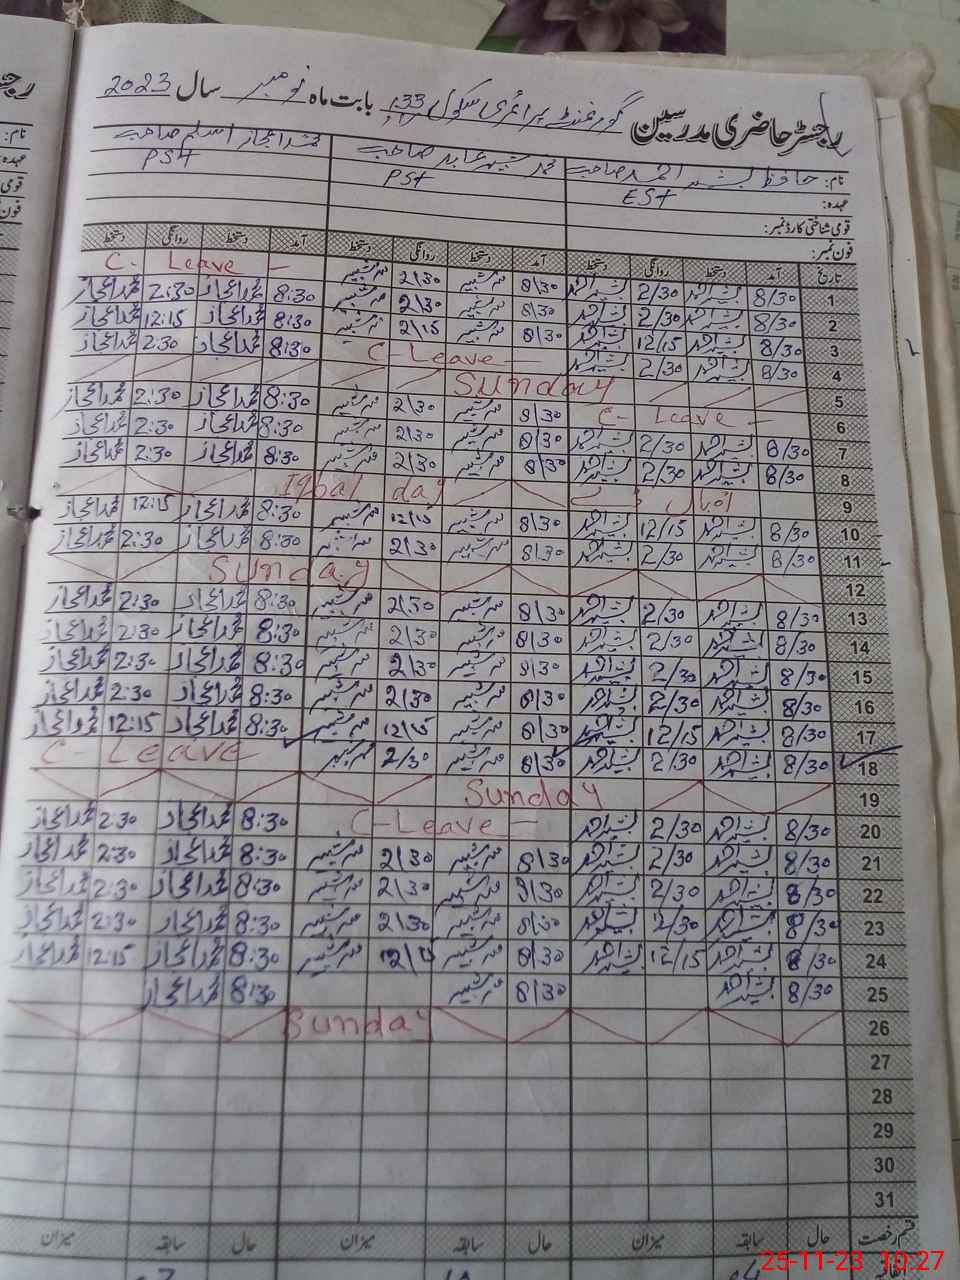 رجسٹر حاضری مدرسین گورنمنٹ پرائمری سکول 133 مراد بابت ماہ نومبر سال 2023
نام: حافظ بشیر احمد صاحب محمد شبیر عابد صاحب محمد اعجاز اسلم صاحب
عہدہ: EST PST PST
قومی شناختی کارڈ نمبر:
فون نمبر:
تاریخ آمد دستخط روانگی دستخط آمد دستخط روانگی دستخط آمد دستخط روانگی دستخط
1 8/30 بشیر احمد 2/30 بشیر احمد 8/30 محمد شبیر 2/30 محمد شبیر C- Leave -
2 8/30 بشیر احمد 2/30 بشیر احمد 8/30 محمد شبیر 2/30 محمد شبیر 8:30 محمد اعجاز 2:30 محمد اعجاز
3 8/30 بشیر احمد 12/15 بشیر احمد 8/30 محمد شبیر 2/15 محمد شبیر 8:30 محمد اعجاز 12:15 محمد اعجاز
4 8/30 بشیر احمد 2/30 بشیر احمد C- Leave - 8:30 محمد اعجاز 2:30 محمد اعجاز
5 Sunday
6 C- Leave - 8/30 محمد شبیر 2/30 محمد شبیر 8:30 محمد اعجاز 2:30 محمد اعجاز
7 8/30 بشیر احمد 2/30 بشیر احمد 8/30 محمد شبیر 2/30 محمد شبیر 8:30 محمد اعجاز 2:30 محمد اعجاز
8 8/30 بشیر احمد 2/30 بشیر احمد 8/30 محمد شبیر 2/30 محمد شبیر 8:30 محمد اعجاز 2:30 محمد اعجاز
9 اقبال ڈے Iqbal day
10 8/30 بشیر احمد 12/15 بشیر احمد 8/30 محمد شبیر 12/15 محمد شبیر 8:30 محمد اعجاز 12:15 محمد اعجاز
11 8/30 بشیر احمد 2/30 بشیر احمد 8/30 محمد شبیر 2/30 محمد شبیر 8:30 محمد اعجاز 2:30 محمد اعجاز
12 Sunday
13 8/30 بشیر احمد 2/30 بشیر احمد 8/30 محمد شبیر 2/30 محمد شبیر 8:30 محمد اعجاز 2:30 محمد اعجاز
14 8/30 بشیر احمد 2/30 بشیر احمد 8/30 محمد شبیر 2/30 محمد شبیر 8:30 محمد اعجاز 2:30 محمد اعجاز
15 8/30 بشیر احمد 2/30 بشیر احمد 8/30 محمد شبیر 2/30 محمد شبیر 8:30 محمد اعجاز 2:30 محمد اعجاز
16 8/30 بشیر احمد 2/30 بشیر احمد 8/30 محمد شبیر 2/30 محمد شبیر 8:30 محمد اعجاز 2:30 محمد اعجاز
17 8/30 بشیر احمد 12/15 بشیر احمد 8/30 محمد شبیر 12/15 محمد شبیر 8:30 محمد اعجاز 12:15 محمد اعجاز
18 8/30 بشیر احمد 2/30 بشیر احمد 8/30 محمد شبیر 2/30 محمد شبیر C- Leave -
19 Sunday
20 8/30 بشیر احمد 2/30 بشیر احمد C- Leave - 8:30 محمد اعجاز 2:30 محمد اعجاز
21 8/30 بشیر احمد 2/30 بشیر احمد 8/30 محمد شبیر 2/30 محمد شبیر 8:30 محمد اعجاز 2:30 محمد اعجاز
22 8/30 بشیر احمد 2/30 بشیر احمد 8/30 محمد شبیر 2/30 محمد شبیر 8:30 محمد اعجاز 2:30 محمد اعجاز
23 8/30 بشیر احمد 2/30 بشیر احمد 8/30 محمد شبیر 2/30 محمد شبیر 8:30 محمد اعجاز 2:30 محمد اعجاز
24 8/30 بشیر احمد 12/15 بشیر احمد 8/30 محمد شبیر 12/15 محمد شبیر 8:30 محمد اعجاز 12:15 محمد اعجاز
25 8/30 بشیر احمد 8/30 محمد شبیر 8:30 محمد اعجاز
26 Sunday
27
28
29
30
31
قسم رخصت حال سابقہ میزان حال سابقہ میزان حال سابقہ میزان
25-11-23 10:27